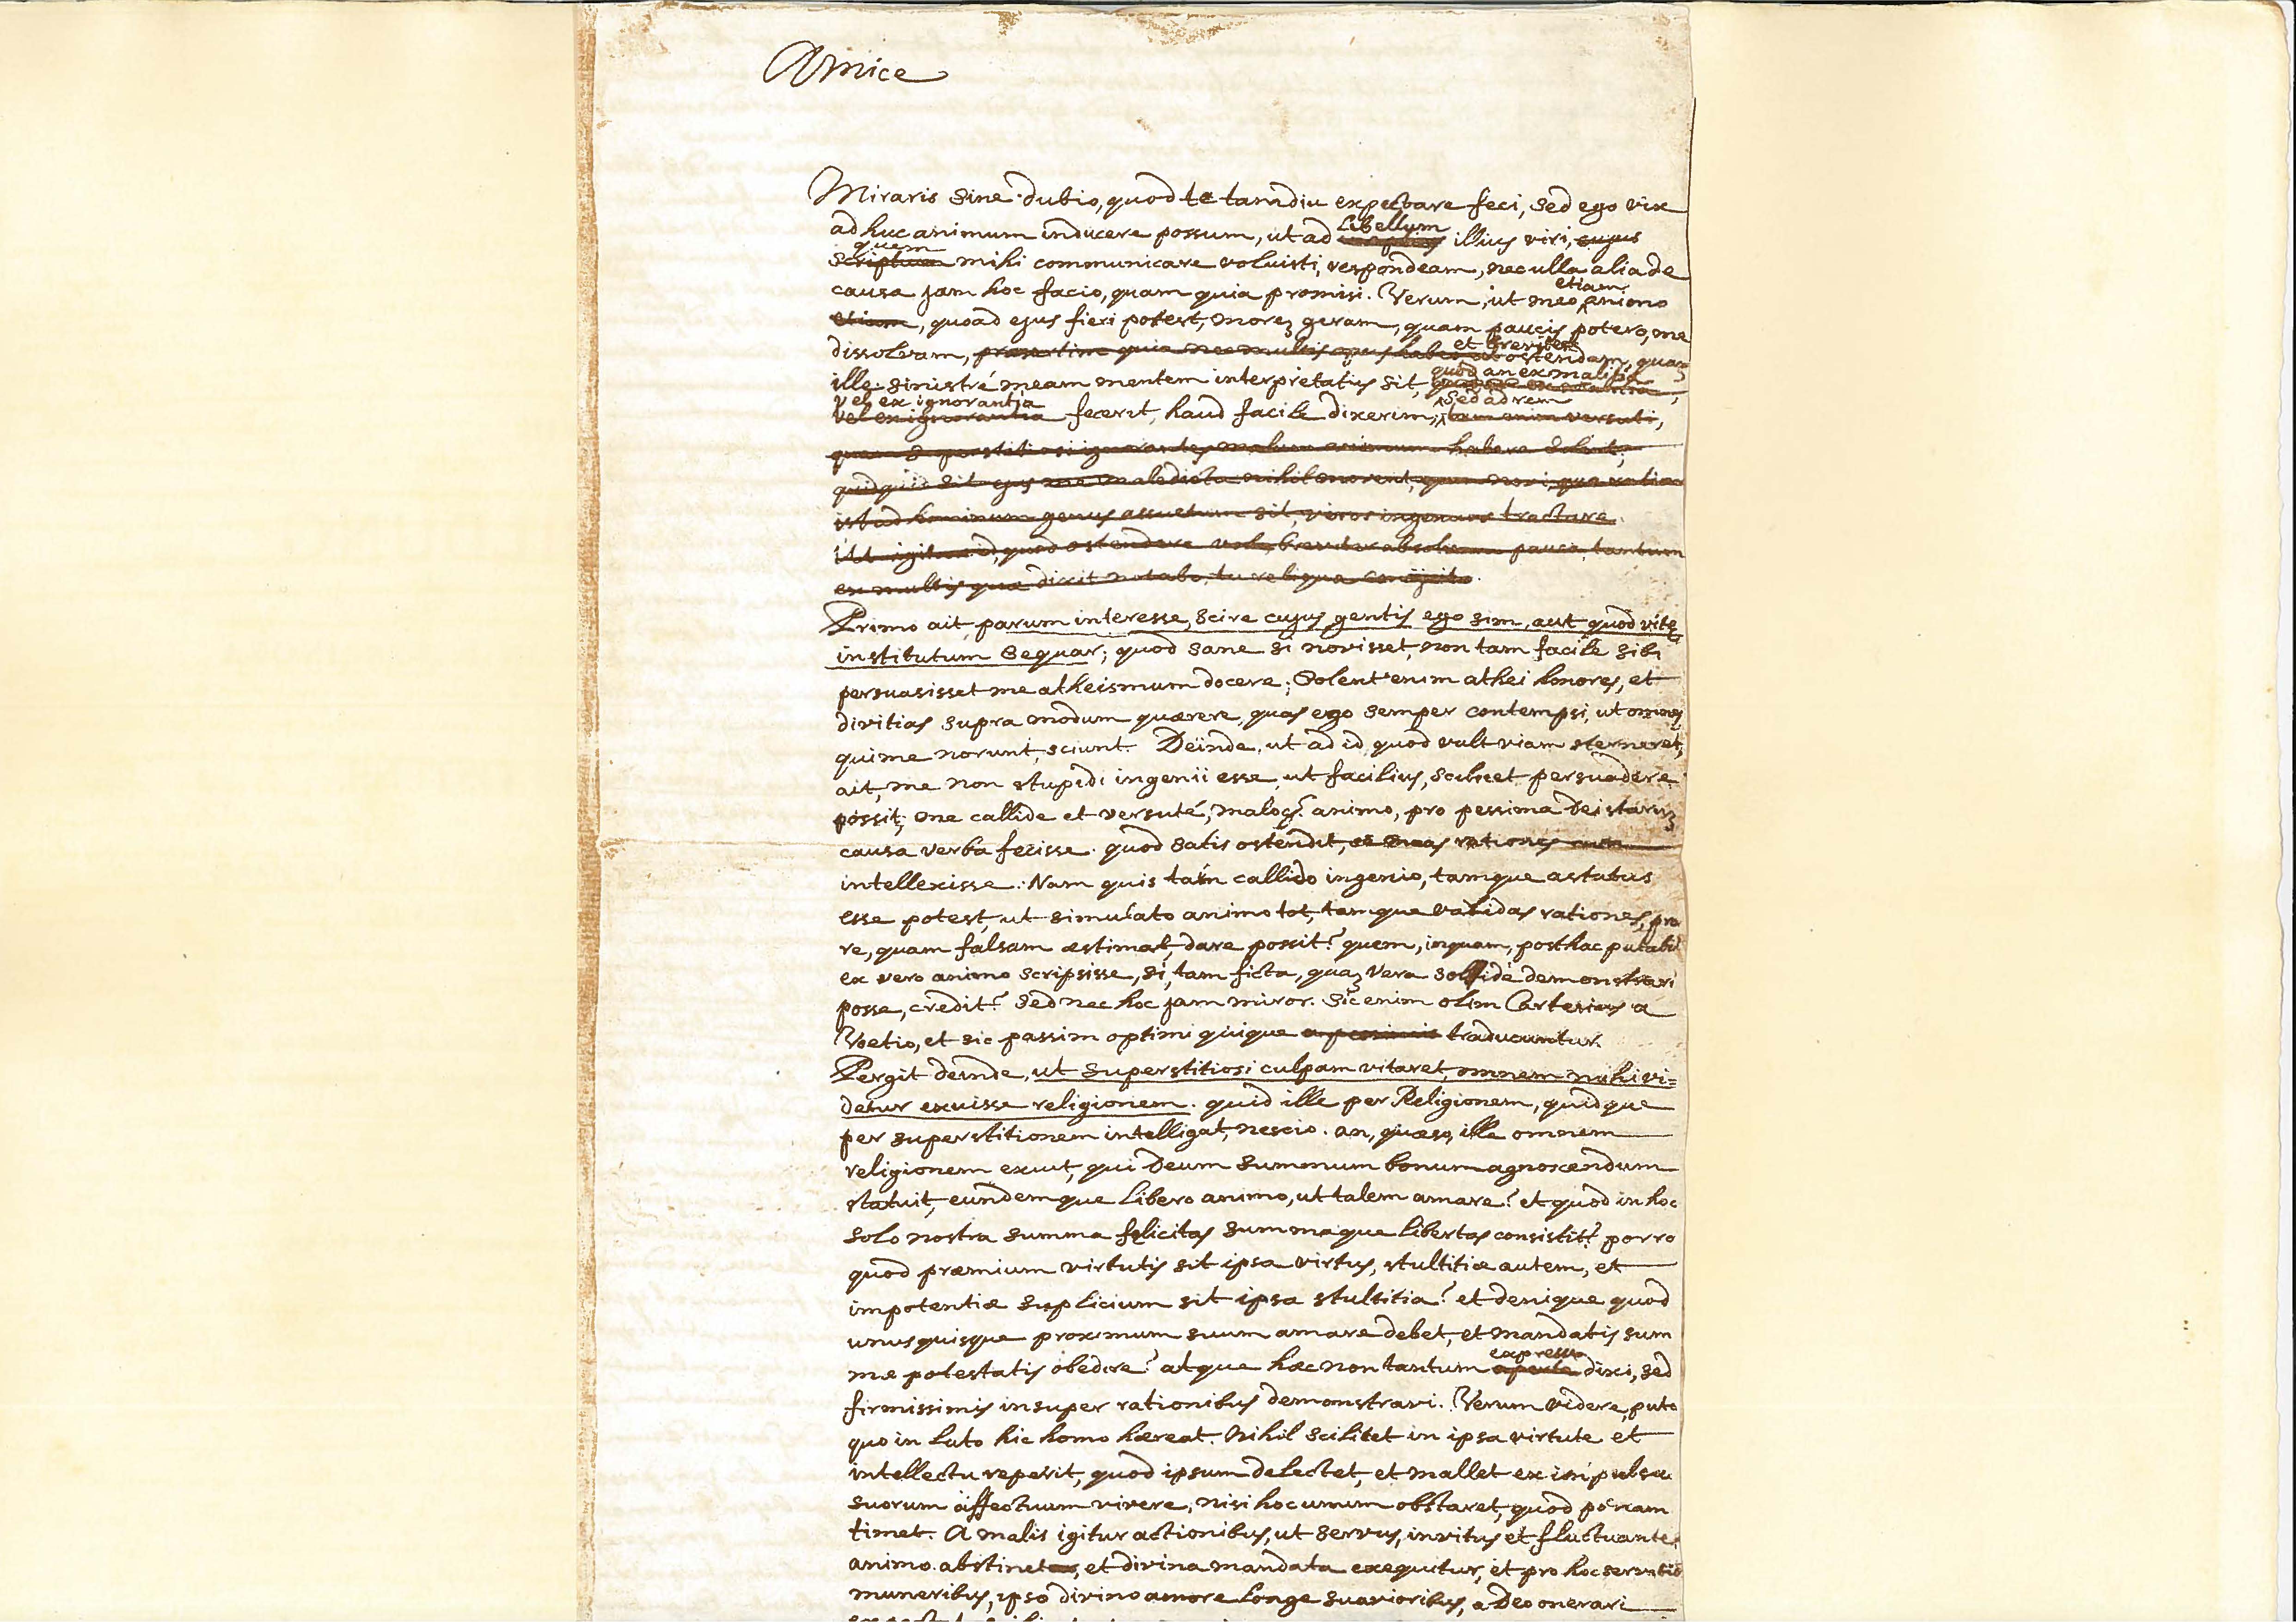 Amice
Miraris sine dubio, quod te tamdiu expectare feci, sed ego vix
libellum
adhuc animum inducere possum, ut ad illius viri, cujus
quem
scriptum mihi communicare voluisti, respondeam, nec ulla alia de
etiam
causa jam hoc facio, quam quia promisi. Verum, ut meo animo
etiam, quoad ejus fieri potest, morẽ geram, quam paucis potero, me
et breviter
dissolvam, præsertim quia nec multis opus habeo ut ostendam, quam
quod an ex malitia
ille sinistré meam mentem interpretatus sit,
vel ex ignorantia sed ad rem
vel ex ignorantia fecerit, haud facile dixerim, tam enim versuti,
quam superstitiosi ignorantes malum animum habere solent;
quidquid sit ejus me maledicta nihil movent, quum novi, qua ratione
istud hominum genus assuetum sit, viros ingenuos tractare.
Ut igitur id, quod ostendere volo, breviter absolvam pauca, tantum
ex multis quæ dixit notabo, tu reliqua conijcito.
Primo ait, parum interesse, scire cujus gentis ego sim, aut quod vitæ
institutum sequar; quod sane si novisset, non tam facile sibi
persuasisset me atheismum docere; Solent enim athei honores, et
divitias supra modum quærere, quas ego semper contempsi, ut omnes
qui me norunt, sciunt. Deinde, ut ad id quod vult viam sterneret,
ait, me non stupidi ingenii esse, ut facilius, scilicet persuadere
possit, me callide et versuté, maloq; animo, pro pessima deistarum
causa verba fecisse. quod satis ostendit, se meas rationes non
intellexisse. Nam quis tam callido ingenio, tamque astutus
esse potest, ut simulato animo tot, tamque validas rationes, pro
re, quam falsam æstimat, dare possit? quem, inquam, posthac putabit
ex vero animo scripsisse, si, tam ficta, quaʒ vera solidè demonstrari
posse, credit? sed nec hoc jam miror. Sic enim olim Cartesius a
Voetio, et sic passim optimi quique a pessimis traducuntur.
Pergit deinde, ut superstitiosi culpam vitaret, omnem mihi vi=
detur exuisse religionem. quid ille per Religionem, quidque
per superstitionem intelligat, nescio. an, quæso, ille omnem
religionem exuit, qui Deum summum bonum agnoscendum
statuit, eundemque libero animo, ut talem amare? et quod in hoc
solo nostra summa felicitas summaque libertas consistit? porro
quod præmium virtutis sit ipsa virtus, stultitiæ autem, et
impotentiæ suplicium sit ipsa stultitia? et denique quod
unusquisque proximum suum amare debet, et mandatis sum
expresse
mæ potestatis obedire? atque hæc non tantum aperte dixi, sed
firmissimis insuper rationibus demonstravi. Verum videre, puto
quo in luto hic homo hæreat. Nihil scilicet in ipsa virtute et
intellectu reperit, quod ipsum delectet, et mallet ex impulsu
suorum affectuum vivere, nisi hoc unum obstaret, quod pœnam
timet. A malis igitur actionibus, ut servus, invitus et fluctuante
animo abstinet, et divina mandata exequitur, et pro hoc servitio
muneribus, ipso divino amore longe suavioribus, a Deo onerari